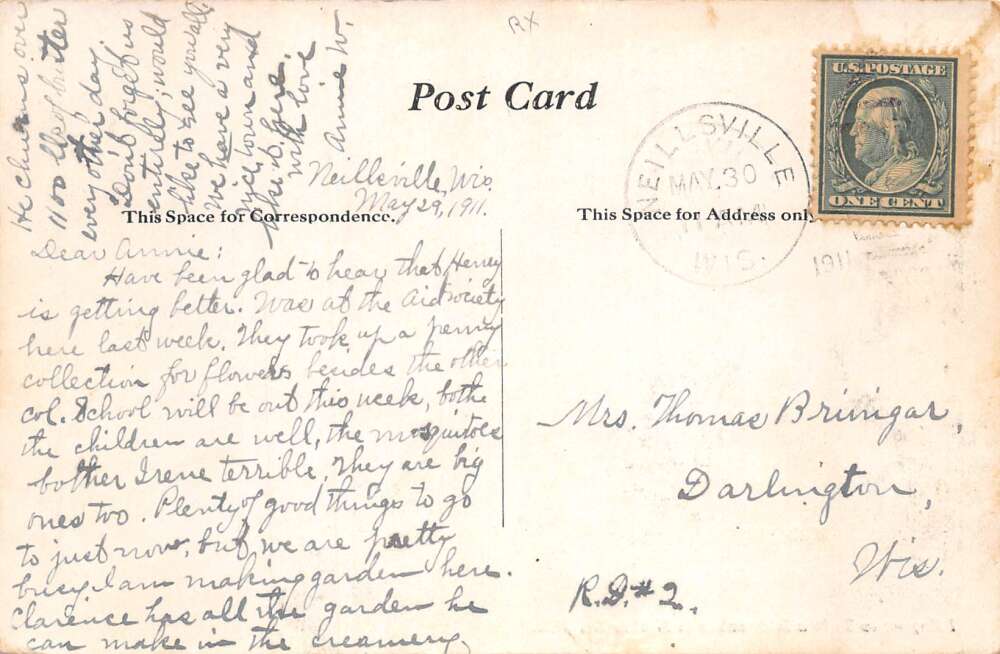 RX
Post Card
U.S. POSTAGE
ONE CENT
NEILLSVILLE
MAY. 30
WIS.
1911
This Space for Correspondence.
This Space for Address only
Neillsville, Wis.
May 29, 1911.
Dear Annie:
Have been glad to hear that Henry
is getting better. Was at the Aid society
here last week. They took up a penny
collection for flowers besides the other
col. School will be out this week, bothe
the children are well, the mosquitoes
bother Irene terrible. They are big
ones too. Plenty of good things to go
to just now, but we are pretty
busy. I am making garden here.
Clarence has all the garden he
can make in the creamery.
He churns over
1100 lbs of butter
every other day.
Don't forget us
entirely; would
like to see you all.
We have a very
nice town and
like it here.
With love
Annie W.
Mrs. Thomas Bringar,
Darlington,
Wis.
R.D. # 2.